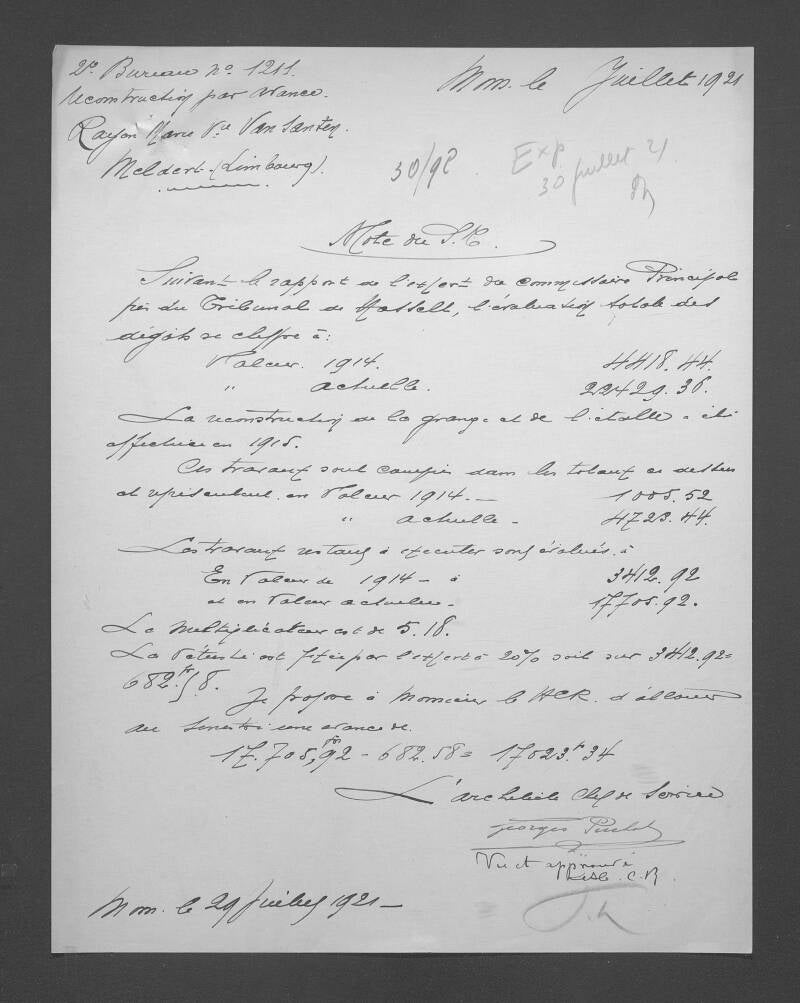 2e Bureau no 1211.
Mons. le Juillet 1921
reconstruction par avance.
Rayon Marie Vve Van Santen.
Meldert (Limbourg).
30/92
Exp.
30 juillet 21
Note du S.R.
Suivant le rapport de l'expert du commissaire Principal
près du Tribunal de Hasselt, l'évaluation totale des
dégâts se chiffre à:
Valeur. 1914. 4418.44.
" actuelle. 22429.36.
La reconstruction de la grange et de l'étable a été
effectuée en 1915.
Ces travaux sont compris dans les totaux ci dessus
et représentent en Valeur 1914.— 1005.52
" actuelle - 4723.44.
Les travaux restant à exécuter sont évalués à
En Valeur de 1914 - à 3412.92
et en Valeur actuelle - 17705.92.
Le multiplicateur est de 5.18.
La Vétusté est fixée par l'expert à 20% soit sur 3412.92=
682.fr58. Je propose à Monsieur le HCR. d'allouer
au sinistré une avance de.
17.705,fr92 - 682.58= 17023.fr34
L'architecte Chef de Service
Georges
Vu et approuvé
C.R.
Mons. le 29 Juillet 1921 -